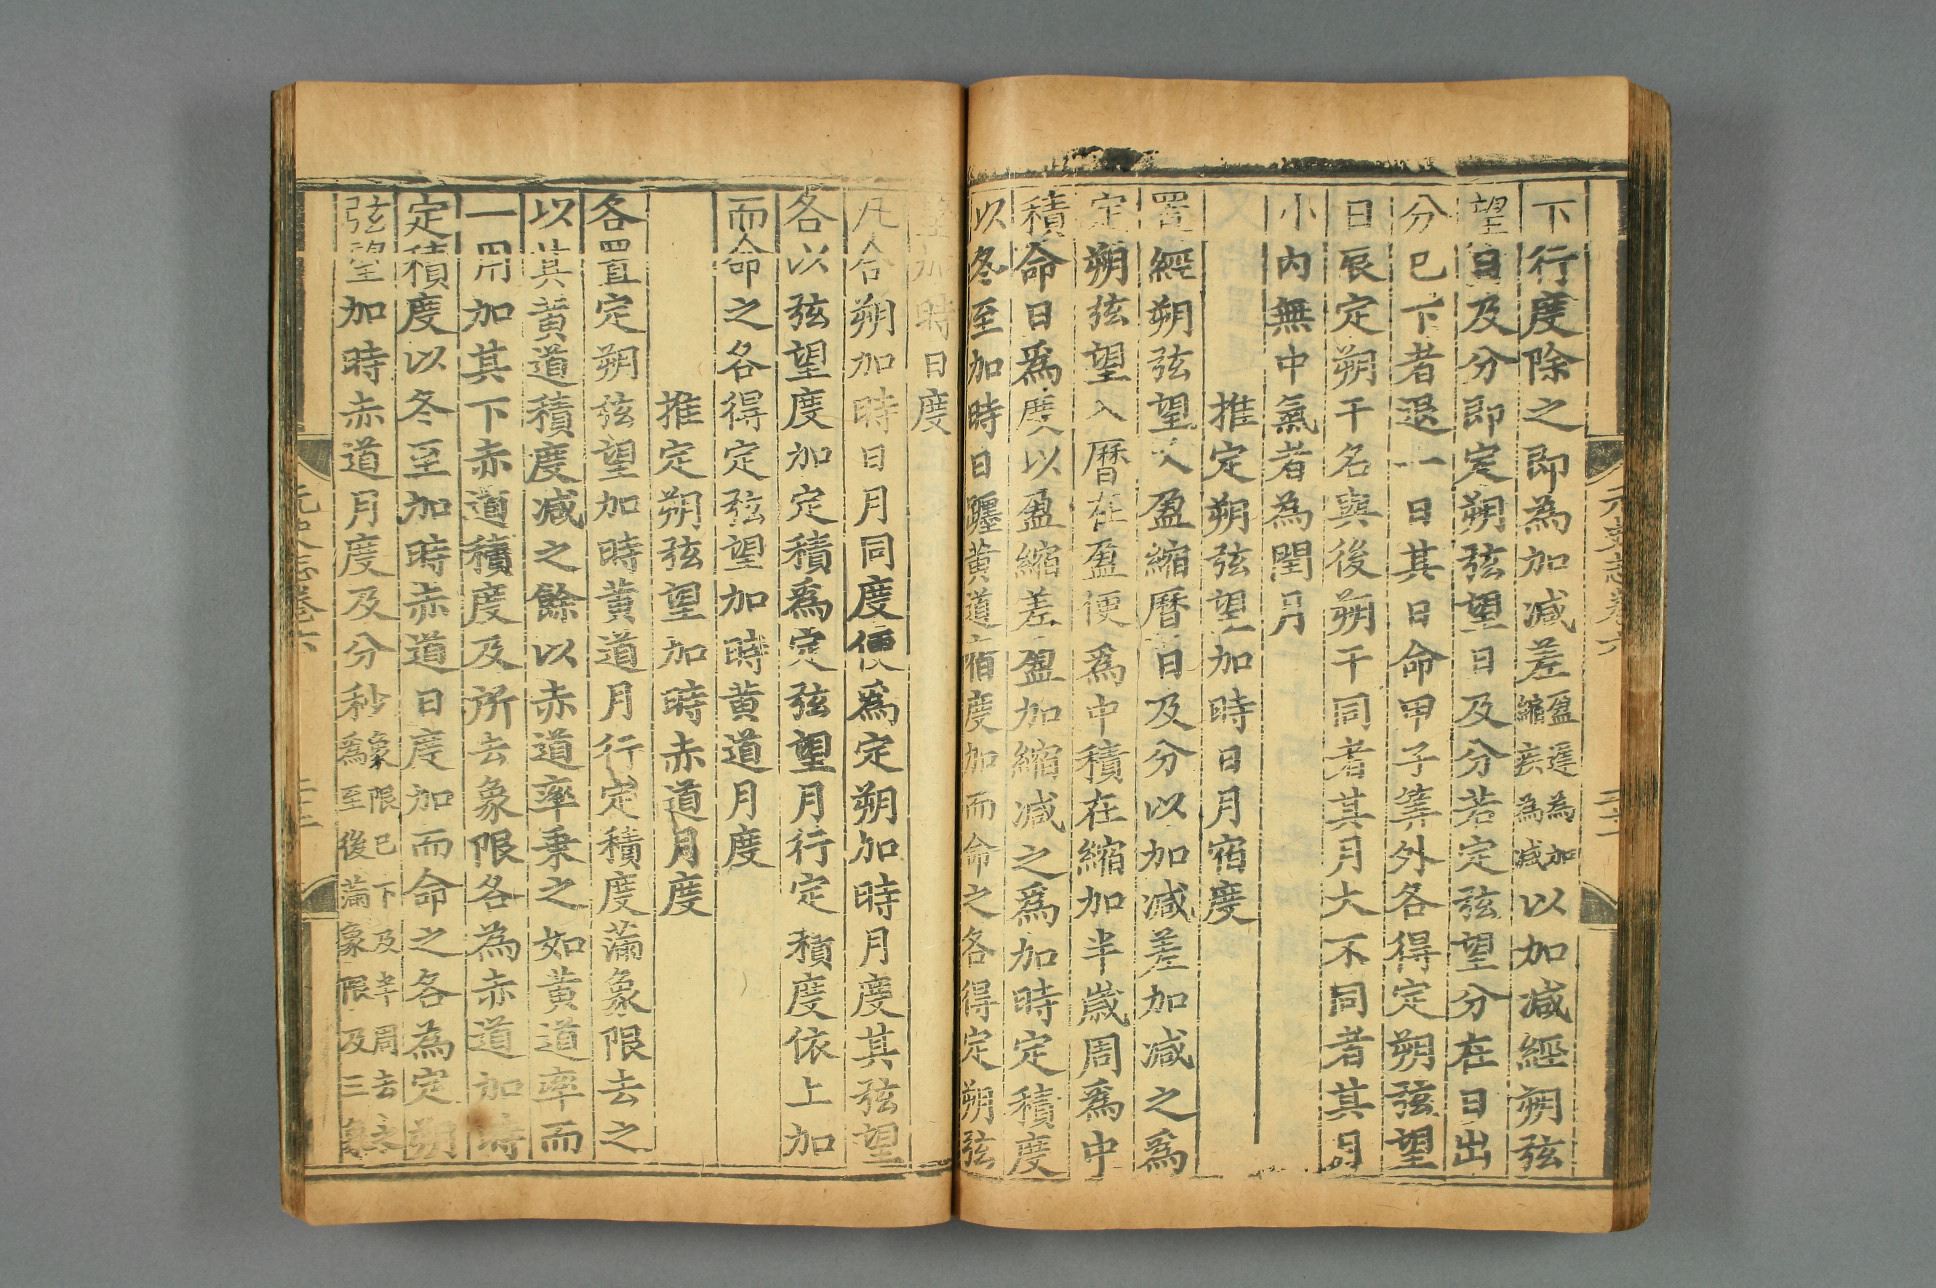 下行度除之即為加減差盈遲為加縮疾為減以加減經朔弦
望日及分即定朔弦望日及分若定弦望分在日出
分已下者退一日其日命甲子筭外各得定朔弦望
日辰定朔干名與後朔干同者其月大不同者其月
小内無中氣者為閏月
推定朔弦望加時日月宿度
置經朔弦望入盈縮曆日及分以加減差加減之為
定朔弦望入曆在盈便為中積在縮加半歲周爲中
積命日爲度以盈縮差盈加縮減之爲加時定積度
以冬至加時日躔黄道宿度加而命之各得定朔弦
加時日度
凡合朔加時日月同度便爲定朔加時月度其弦望
各以弦望度加定積爲定弦望月行定積度依上加
而命之各得定弦望加時黄道月度
推定朔弦望加時赤道月度
各置定朔弦望加時黄道月行定積度滿象限去之
以其黄道積度減之餘以赤道率乗之如黄道率而
一用加其下赤道積度及所去象限各為赤道加時
定積度以冬至加時赤道日度加而命之各為定朔
弦望加時赤道月度及分秒象限已下及半周去之為至後滿象限及三象
元史志卷六